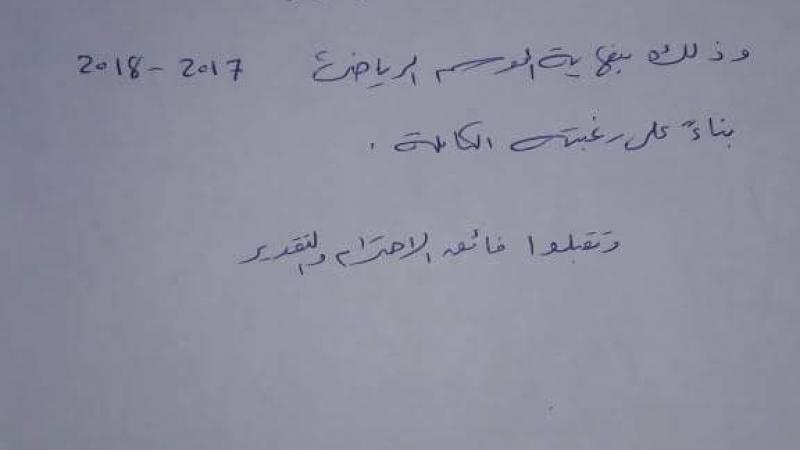 وذلك بنهاية الموسم الرياضي 2017 - 2018
بناءً على رغبته الكاملة .
وتقبلوا فائق الاحترام والتقدير